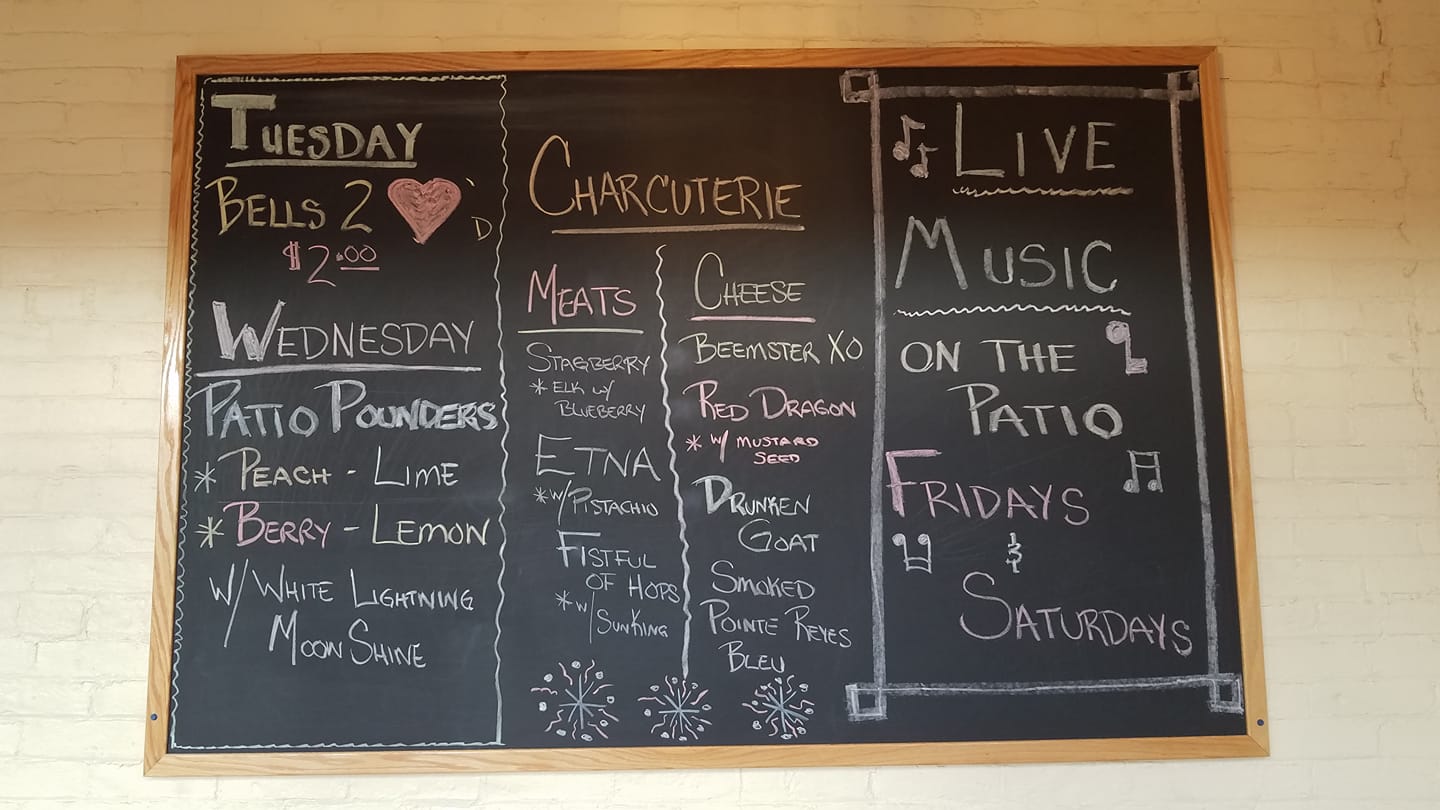 TUESDAY
BELLS 2 ♥'D
$2.00
WEDNESDAY
PATIO POUNDERS
* PEACH - LIME
* BERRY - LEMON
W/ WHITE LIGHTNING
MOON SHINE
CHARCUTERIE
MEATS
STAGBERRY
* ELK W/
BLUEBERRY
ETNA
* W/ PISTACHIO
FISTFUL
OF HOPS
* W/
SUNKING
CHEESE
BEEMSTER XO
RED DRAGON
* W/ MUSTARD
SEED
DRUNKEN
GOAT
SMOKED
POINTE REYES
BLEU
LIVE
MUSIC
ON THE
PATIO
FRIDAYS
&
SATURDAYS